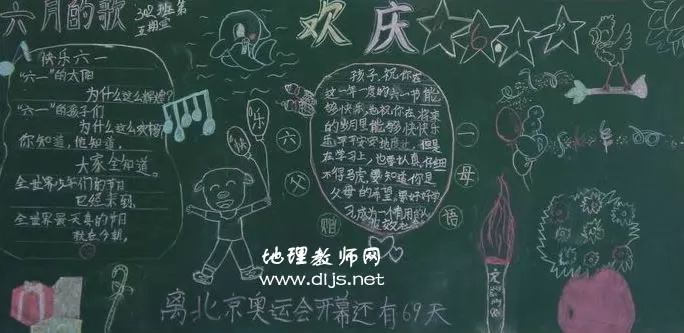 六月的歌
302班第
五期
快乐六一
"六一"的太阳
为什么这么辉煌?
"六一"的孩子们
为什么这么欢畅?
你知道,他知道,
大家全知道。
全世界少年们的节日
已经来到,
全世界最天真的节日
就在今朝。
欢庆
6.1
快乐
六一
父母
赠语
孩子,祝你在
这一年一度的六一节能
够快乐,也祝你在将来
的岁月里能够快快乐
乐平平安安地度过,但是
在学习上,也要认真,仔细
不得马虎要知道你是
父母的希望,要好好学
地理教师网
www.dljs.net
离北京奥运会开幕还有69天